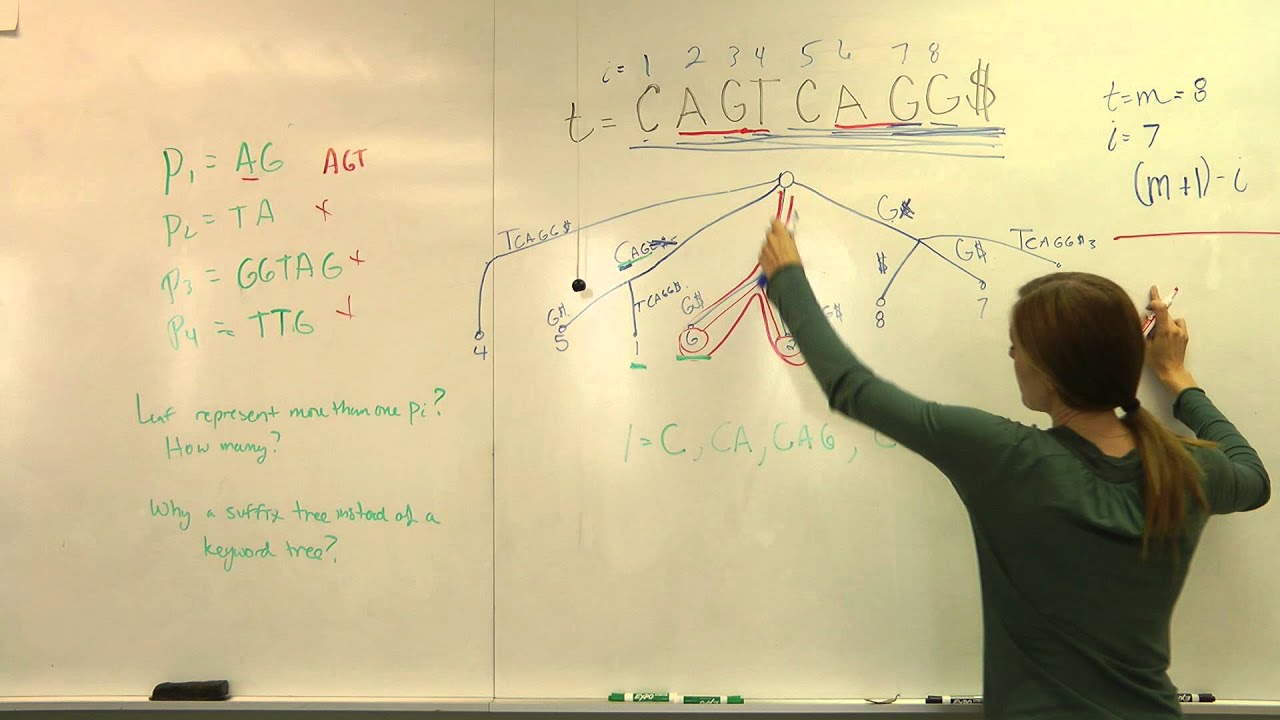 i= 1 2 3 4 5 6 7 8
t= CAGTCAGG$
t=m=8
i=7
(m+1)-i
P1 = AG AGT
P2 = TA x
P3 = GGTAG x
P4 = TTG x
TCAGG$
4
G$
5
TCAGG$
1
G$
6
G
$
8
G$
7
TCAGG$ 3
1=C, CA, CAG,
Leaf represent more than one Pi?
How many?
Why a suffix tree instead of a
keyword tree?
EXPO